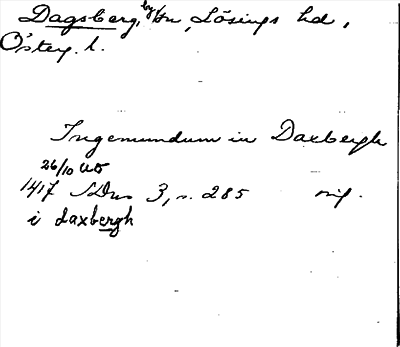 Dagsberg, by, sn, Lösings hd,
Österg. l.
Ingemundum in Daxbergh
26/10 AÖ
1417 SDns 3, s. 285 orig.
i daxbergh